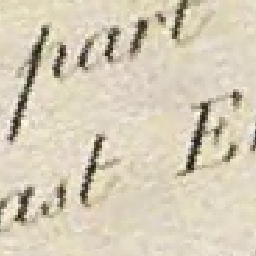 part
ast E